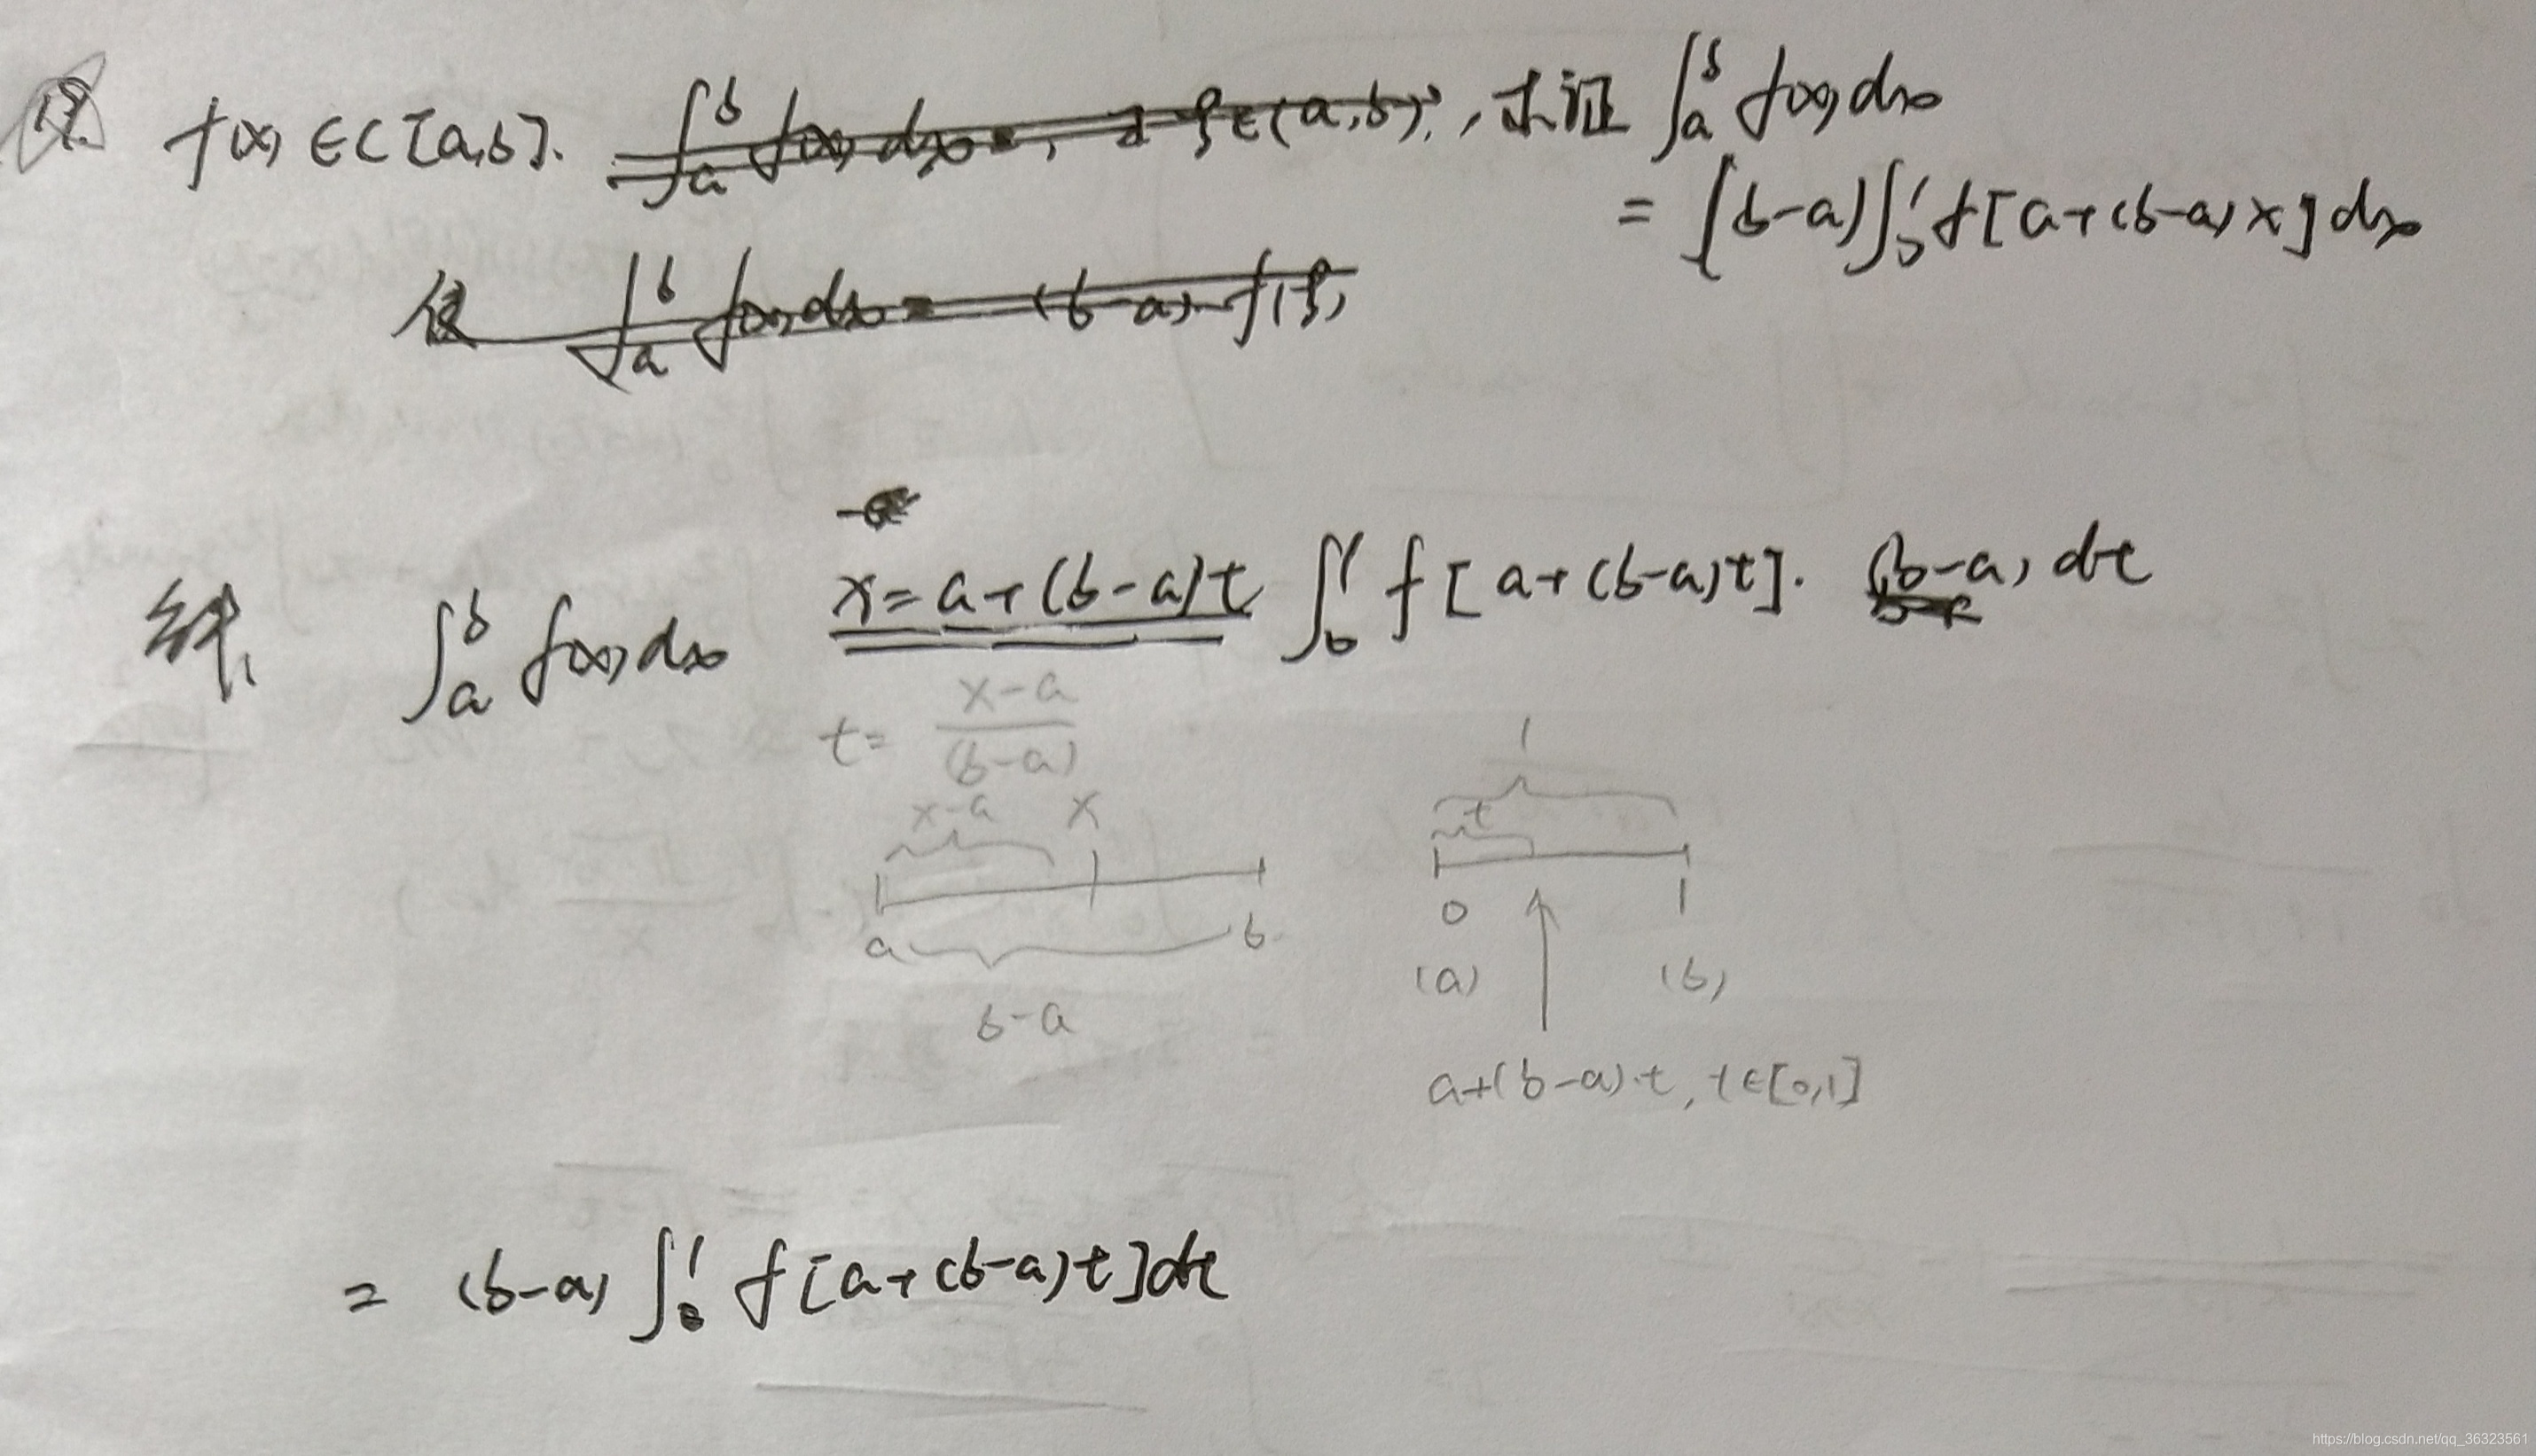 f(x)∈C[a,b]. ∫_a^b f(x)dx , ∃ ξ∈(a,b), 求证 ∫_a^b f(x)dx
= (b-a)∫_0^1 f[a+(b-a)x]dx
使 ∫_a^b f(x)dx = (b-a)·f(ξ)
解. ∫_a^b f(x)dx x=a+(b-a)t ∫_0^1 f[a+(b-a)t]. (b-a)dt
t= (x-a)/(b-a)
1
x-a x t
a b 0 1
(a) (b)
b-a
a+(b-a)·t, t∈[0,1]
= (b-a) ∫_0^1 f[a+(b-a)t]dt
https://blog.csdn.net/qq_36323561